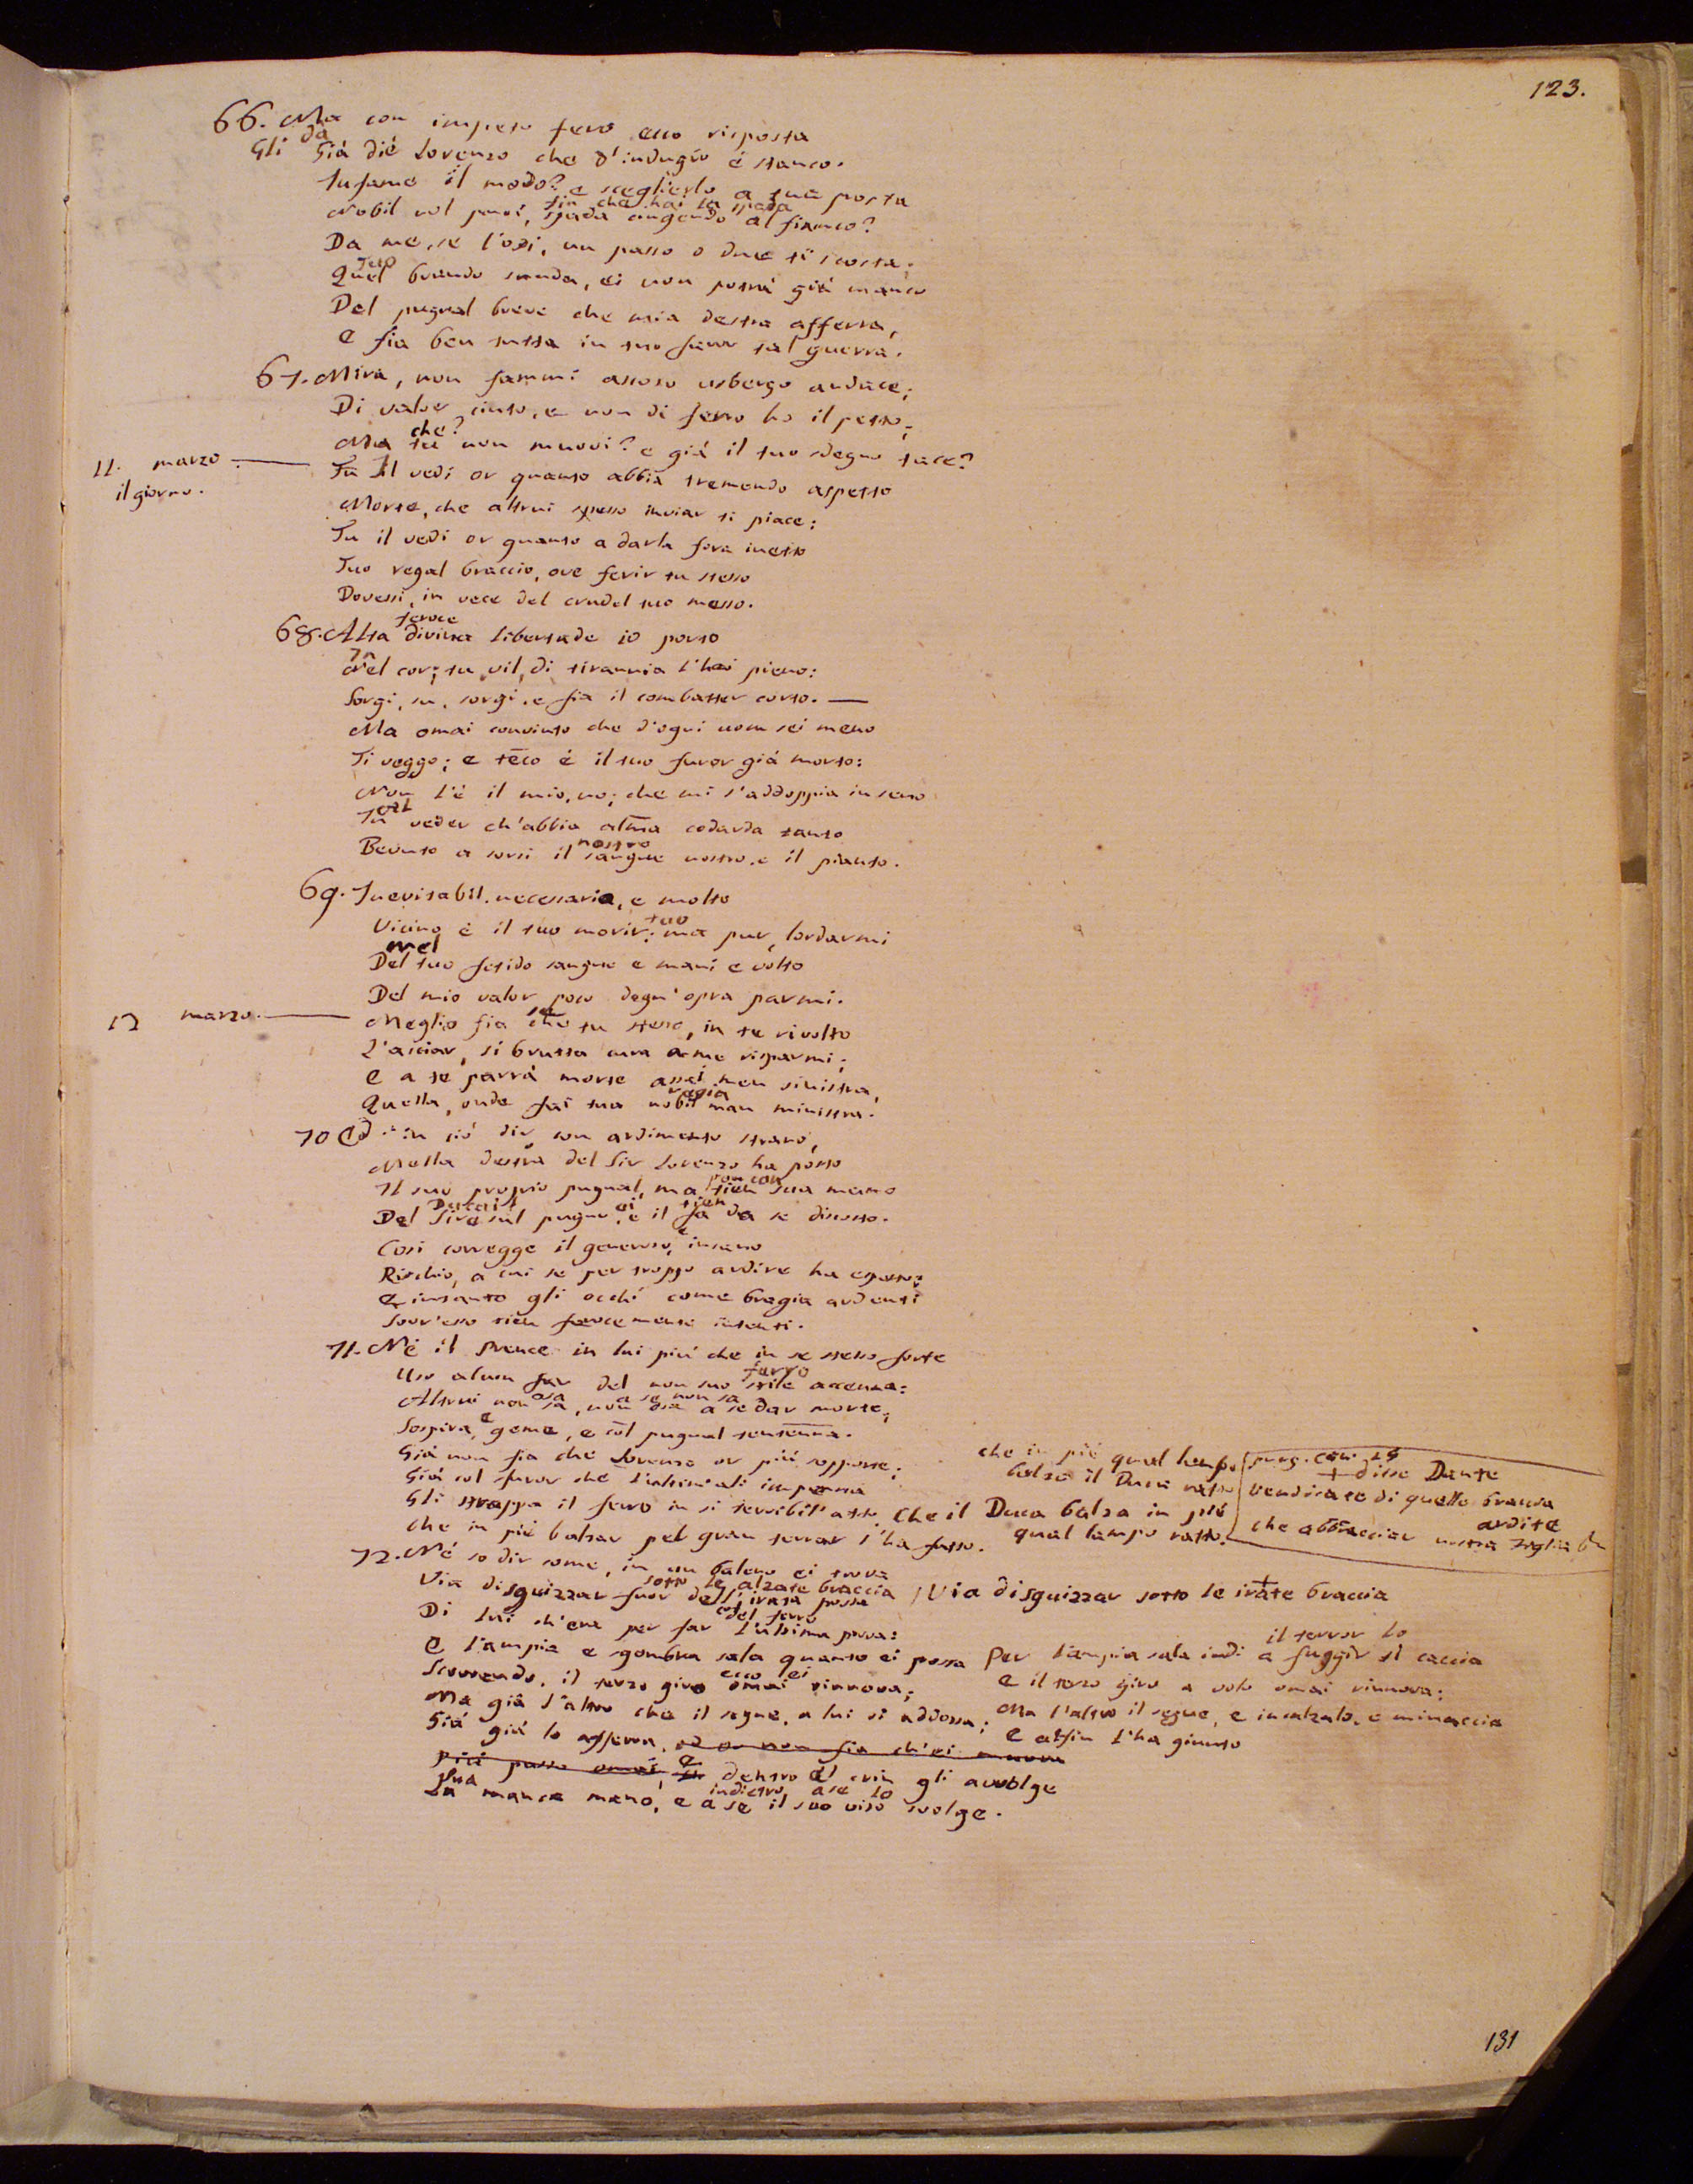 123.
66. Ma con impeto fero ecco risposta
dà
Gli Già diè Lorenzo che d'indugio è stanco.
Infame il modo? e sceglierlo a tua posta
fin che hai la spada
Nobil nol puoi, spada cingendo al fianco?
Da me, se l'osi, un passo o due ti scosta;
Tuo
Quel brando snuda, ei non potrà già manco
Del pugnal breve che mia destra afferra,
E fia ben tutta in tuo favor tal guerra.
67. Mira, non fammi ascoso usbergo audace;
Di valor cinto, e non di ferro ho il petto;
che?
Ma tu non muovi? e già il tuo sdegno tace?
11. marzo.
il giorno.
Tu il vedi or quanto abbia tremendo aspetto
Morte, che altrui spesso inviar ti piace:
Tu il vedi or quanto a darla fora inetto
Tuo regal braccio, ove ferir tu stesso
Dovessi, in vece del crudel tuo messo.
feroce
68. Alta divina libertade io porto
In
Nel cor; tu, vil, di tirannia l'hai pieno:
Sorgi, su, sorgi, e fia il combatter corto. —
Ma omai convinto che d'ogni uom sei meno
Ti veggo; e teco è il tuo furor già morto:
Non l'è il mio, no; che mi s'addoppia in seno
Tu veder ch'abbia alma codarda tanto
nostro
Bevuto a sorsi il sangue nostro, e il pianto.
69. Inevitabil, necessaria, e molto
tuo
Vicino è il tuo morir: ma pur, lordarmi
nel
Del tuo fetido sangue e mani e volto
Del mio valor poco degn'opra parmi.
13 marzo.
se
Meglio fia che tu stesso, in te rivolto
L'acciar, sì brutta cura a me risparmi;
E a te parrà morte assai men sinistra,
regia
Quella, onde fai tua nobil man ministra.
70 Ed in ciò dir, con ardimento strano,
Nella destra del Sir Lorenzo ha posto
pon con
Il suo proprio pugnal, ma tien sua mano
ei tien
Del Sire sul pugno, e il fa da se discosto.
Così corregge il generoso, insano
Rischio, a cui se per troppo ardire ha esposto;
E intanto gli occhi come bragia ardenti
Sovr'esso tien ferocemente intenti.
71. Nè il Prence in lui più che in se stesso forte
ferro
Uso alcun far del non suo stile accenna:
osa a se non sa
Altrui non sa, non osa a se dar morte;
e
Sospira, geme, e col pugnal tentenna.
Già non fia che Lorenzo or più sopporte;
Già col furor che l'ultim'ali impenna
Gli strappa il ferro in sì terribil atto,
Che in piè balzar pel gran terror l'ha fatto.
che in piè qual lampo
balza il Duca ratto
Che il Duca balza in piè
qual lampo ratto.
purg. can. 15
+ disse Dante
vendicate di quelle braccia
ardite
che abbracciar nostra figlia
72. Nè so dir come, in un baleno ei trova
sotto le alzate braccia
Via di sguizzar fuor dell'irata possa
Via di sguizzar sotto le irate braccia
col del ferro
Di lui ch'era per far l'ultima prova:
E l'ampia e sgombra sala quanto ei possa
il terror lo
Per l'ampia sala indi a fuggir si caccia
ecco ei
Scorrendo, il terzo giro omai rinnova;
e il terzo giro a volo omai rinnova:
Ma già l'altro che il segue, a lui si addossa;
Ma l'altro il segue, e incalzalo, e minaccia
Già già lo afferra, ed or non fia ch'ei muova
E alfin l'ha giunto
più passo omai, e dentro al crin gli avvolge
Sua indietro a se lo
La manca mano, e a se il suo viso svolge.
131